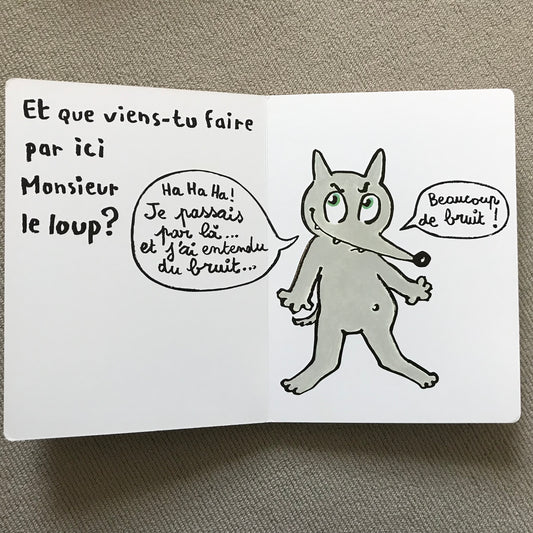 Et que viens-tu faire
par ici
Monsieur
le loup?
Ha Ha Ha!
Je passais
par là...
et j'ai entendu
du bruit...
Beaucoup
de bruit!